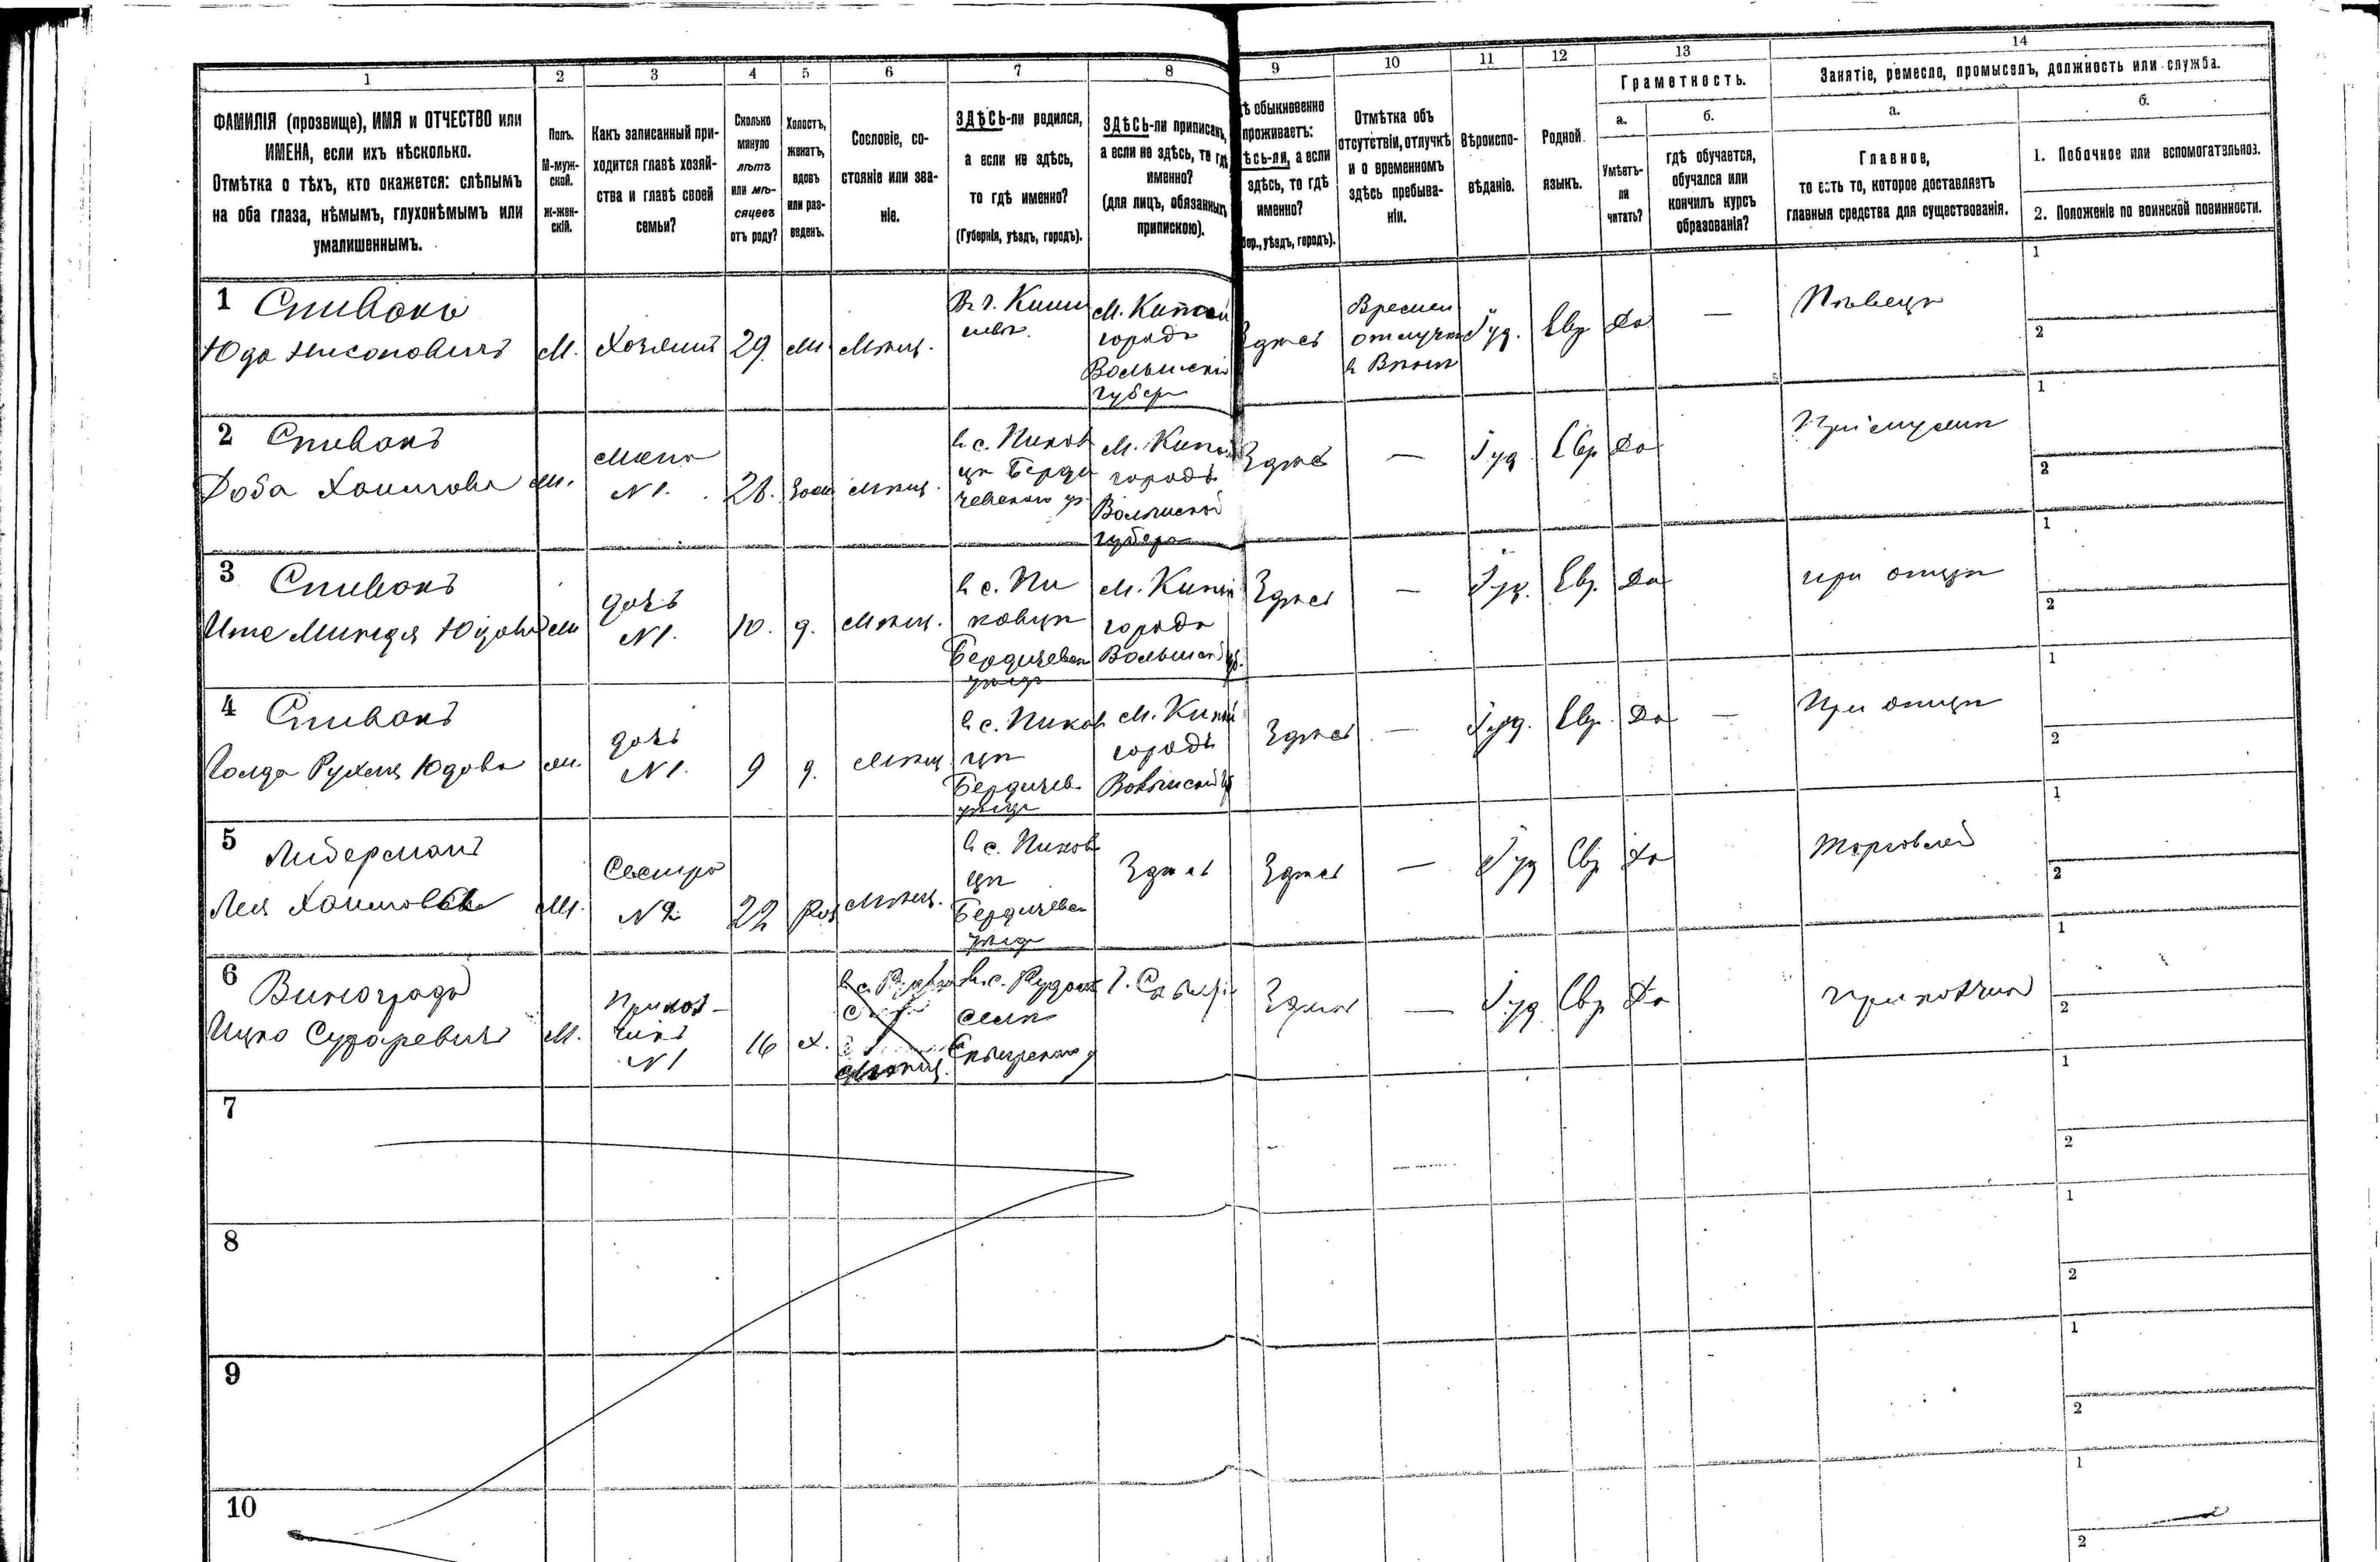 1 2 3 4 5 6 7 8 9 10 11 12 13 14
ФАМИЛІЯ (прозвище), ИМЯ и ОТЧЕСТВО или
ИМЕНА, если ихъ нѣсколько.
Отмѣтка о тѣхъ, кто окажется: слѣпымъ
на оба глаза, нѣмымъ, глухонѣмымъ или
умалишеннымъ.
Полъ.
М-муж-
ской.
ж-жен-
скій.
Какъ записанный при-
ходится главѣ хозяй-
ства и главѣ своей
семьи?
Сколько
минуло
лѣтъ
или мѣ-
сяцевъ
отъ роду?
Холостъ,
женатъ,
вдовъ
или раз-
веденъ.
Сословіе, со-
стояніе или зва-
ніе.
ЗДѢСЬ-ли родился,
а если не здѣсь,
то гдѣ именно?
(Губернія, уѣздъ, городъ).
ЗДѢСЬ-ли приписанъ,
а если не здѣсь, то гдѣ
именно?
(для лицъ, обязанныхъ
припискою).
ѣ обыкновенно
проживаетъ:
ѣсь-ли, а если
здѣсь, то гдѣ
именно?
бер., уѣздъ, городъ).
Отмѣтка объ
отсутствіи, отлучкѣ
и о временномъ
здѣсь пребыва-
ніи.
Вѣроиспо-
вѣданіе.
Родной
языкъ.
Грамотность.
а.
Умѣетъ-
ли
читать?
б.
гдѣ обучается,
обучался или
кончилъ курсъ
образованія?
Занятіе, ремесло, промыселъ, должность или служба.
а.
Главное,
то есть то, которое доставляетъ
главныя средства для существованія.
б.
1. Побочное или вспомогательное.
2. Положеніе по воинской повинности.
1 Спивакъ
Юда М. Хозяинъ 29 Мѣщ.
М.
города
Волынской
губер
Здѣсь
Іуд. Евр Да —
Пѣвецъ
1
2
2 Спивакъ
Доба Хаимова
жена
№ 1. 28. мѣщ.
в с. Пиков
цѣ Берди
чевского у.
М.
города
Волынской
губер
Здѣсь — Іуд Евр Да
1
2
3 Спивакъ
Юдова
дочь
№ 1. 10. д. мѣщ.
в с. Пи
ковцѣ
Бердичевск
уѣзда
М.
города
Волынской
Здѣсь — Іуд. Евр. Да при отцѣ
1
2
4 Спивакъ
Голда Рухля Юдова
дочь
№ 1. 9 д. мѣщ
в с. Пиков
цѣ
Бердичев.
уѣзда
М.
города
Волынской
Здѣсь — Іуд. Евр. Да — При отцѣ
1
2
5 Лидерманъ
Лея Хаимова
Сестра
№ 2 22 мѣщ.
в с. Пиков
цѣ
Бердичевск
уѣзда
Здѣсь Здѣсь — Іуд Евр Да Торговлей
1
2
6 Виноградъ
Ицко М.
Приказ-
чикъ
№ 1 16 х.
мѣщ.
в. с.
селѣ
Сквирского у
г. Сквира
Здѣсь — Іуд Евр Да
1
2
7
1
2
8
1
2
9
1
2
10
1
2